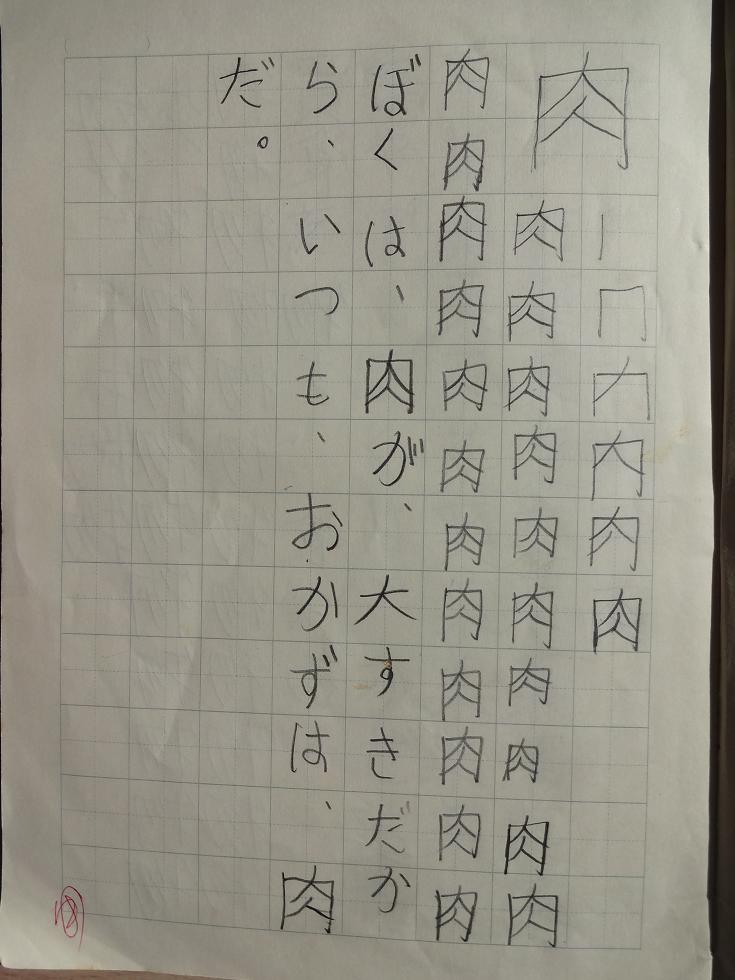 肉
丨冂内肉
肉肉肉肉肉肉肉肉肉肉
肉肉肉肉肉肉肉肉肉肉肉肉
ぼくは、肉が、大すきだか
ら、いつも、おかずは、肉
だ。